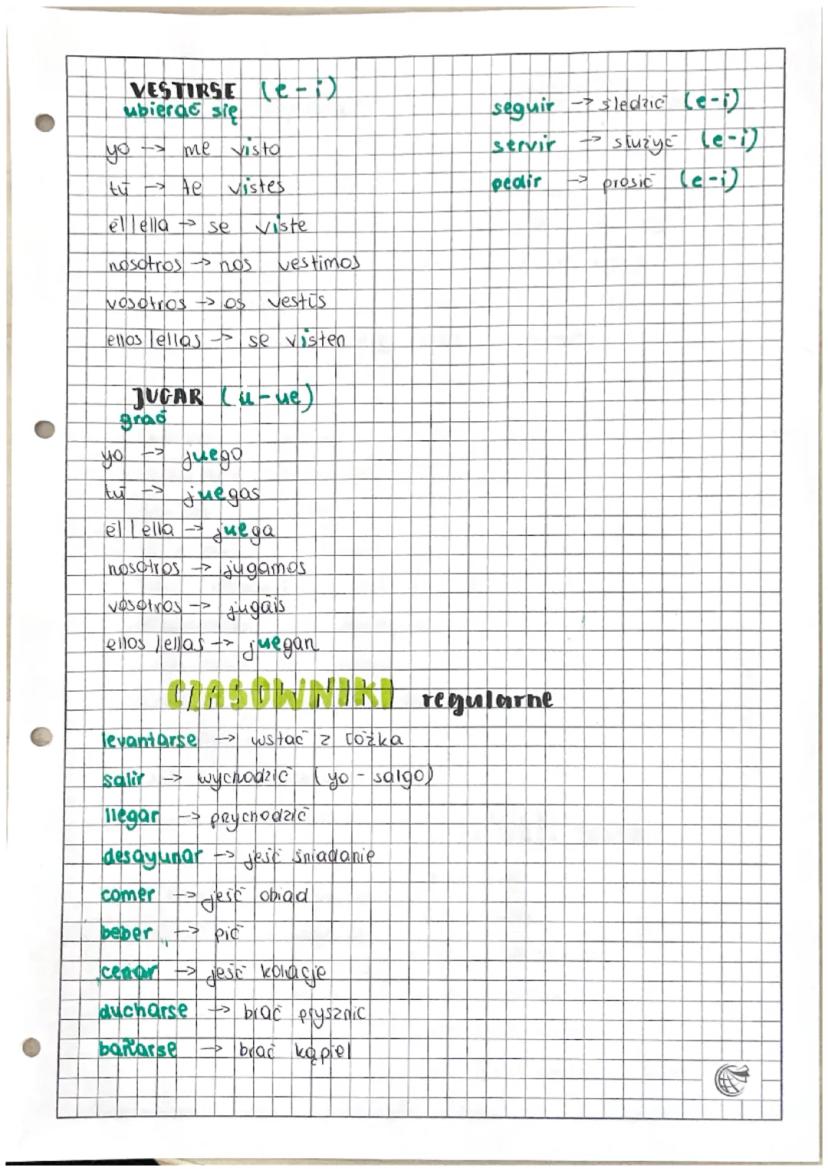 VESTIRSE (e-i)
ubierać się
yo -> me visto
tú -> te vistes
él/ella -> se viste
nosotros -> nos vestimos
vosotros -> os vestís
ellos/ellas -> se visten
seguir -> śledzić (e-i)
servir -> służyć (e-i)
pedir -> prosić (e-i)
JUGAR (u-ue)
grać
yo -> juego
tú -> juegas
él/ella -> juega
nosotros -> jugamos
vosotros -> jugáis
ellos/ellas -> juegan
CZASOWNIKI regularne
levantarse -> wstać z łóżka
salir -> wychodzić (yo - salgo)
llegar -> przychodzić
desayunar -> jeść śniadanie
comer -> jeść obiad
beber -> pić
cenar -> jeść kolację
ducharse -> brać prysznic
bañarse -> brać kąpiel